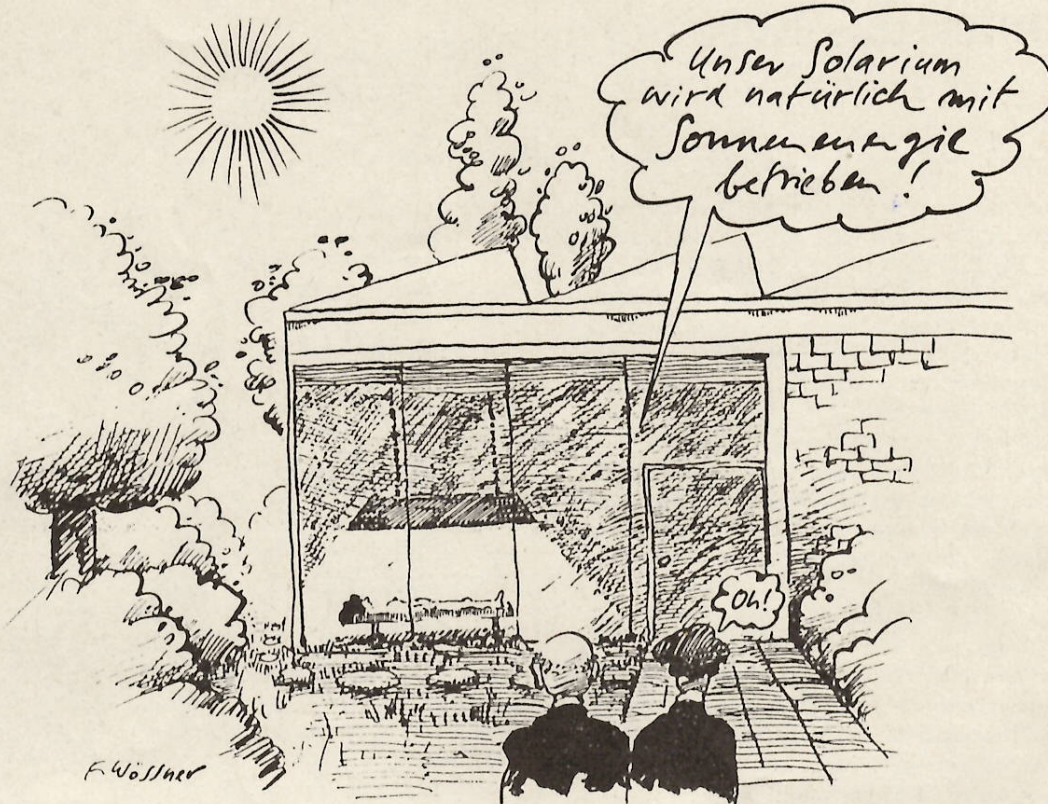 Unser Solarium
wird natürlich mit
Sonnenenergie
betrieben!
Oh!
F. Wössner